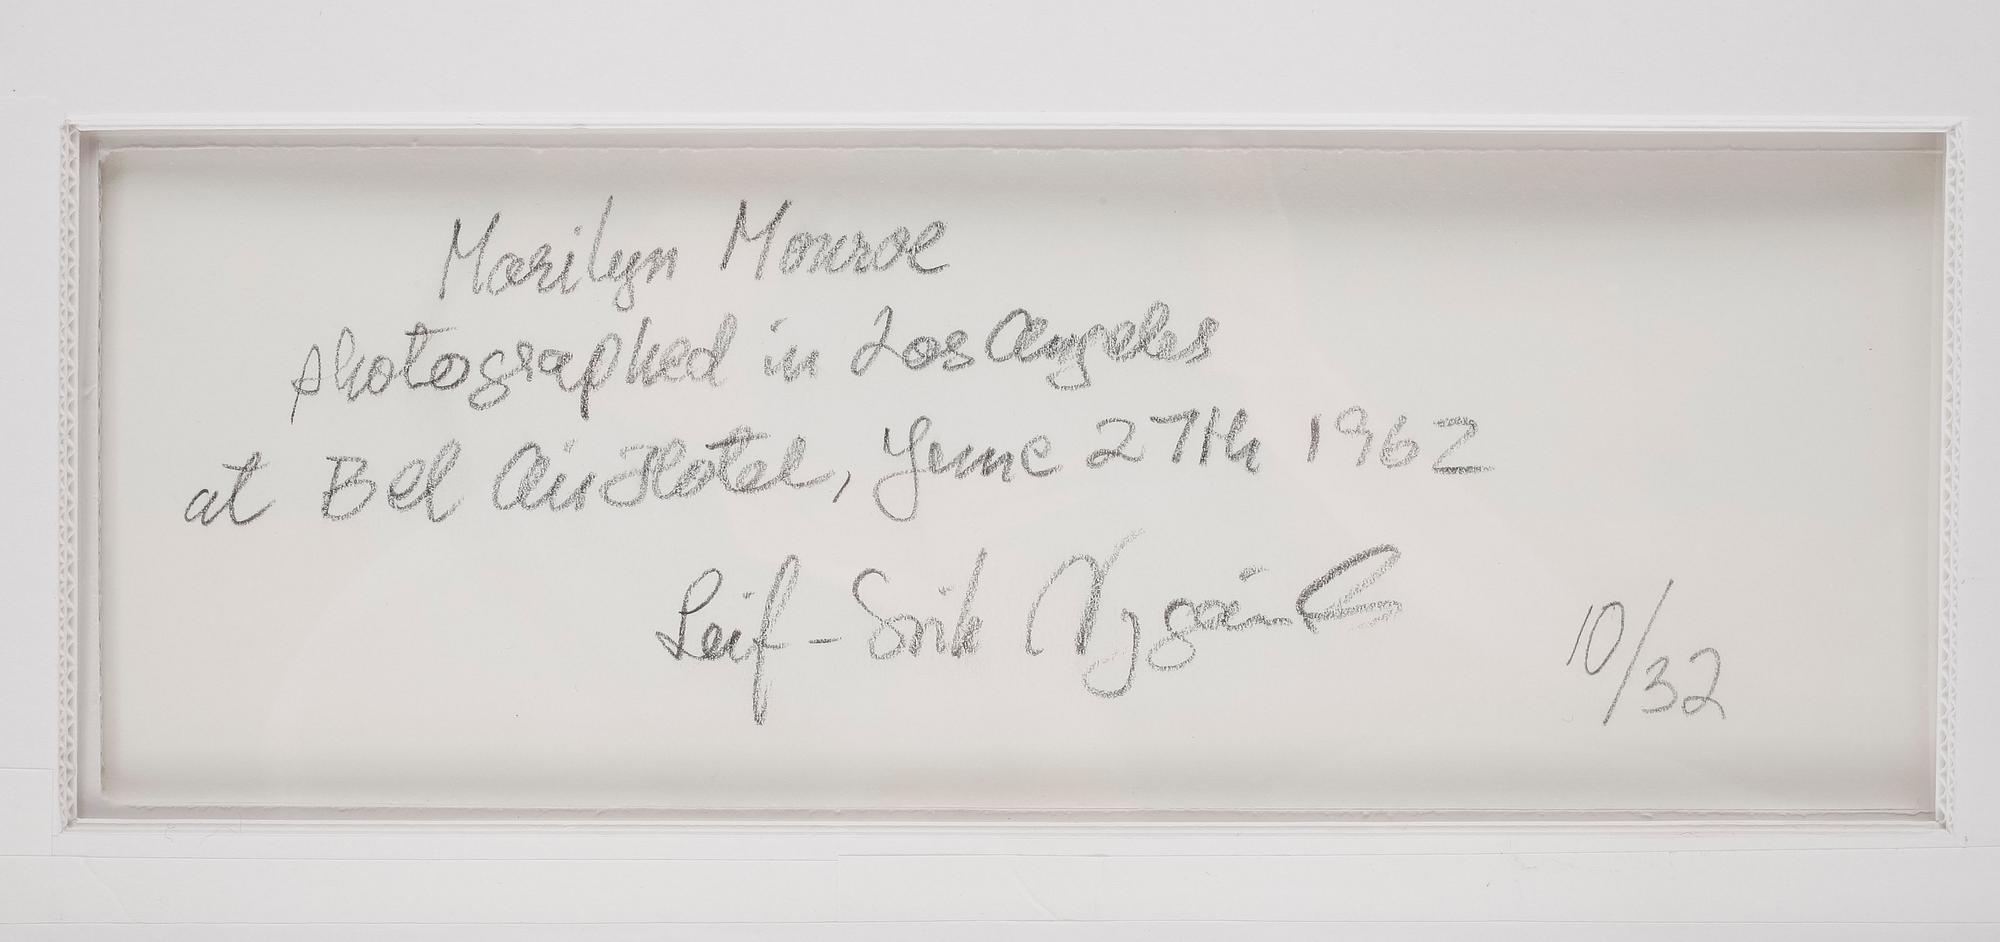 Marilyn Monroe
photographed in Los Angeles
at Bel Air Hotel, June 27th 1962
Leif-Erik Nygårds
10/32